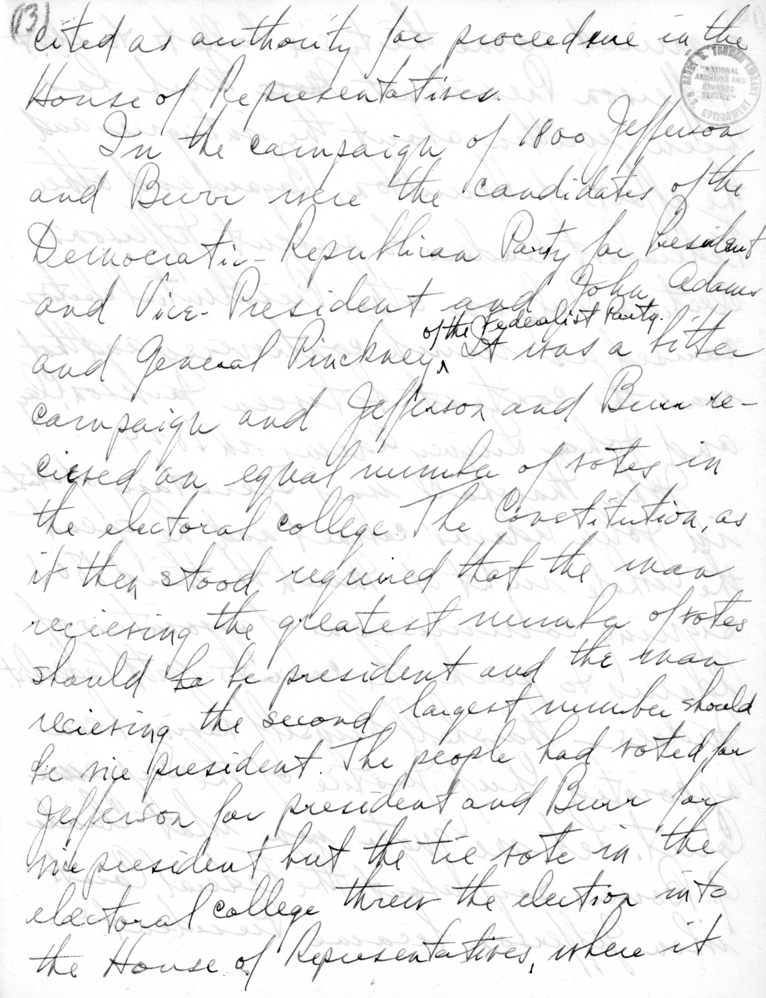 (13)
cited as authority for proceedure in the
House of Representatives.
In the campaign of 1800 Jefferson
and Burr were the candidates of the
Democratic-Republican Party for President
and Vice-President and John Adams
of the Federalist Party.
and General Pinckney. It was a bitter
campaign and Jefferson and Burr re-
cieved an equal number of votes in
the electoral college. The Constitution, as
it then stood, required that the man
recieving the greatest number of votes
should be president and the man
recieving the second largest number should
be vice president. The people had voted for
Jefferson for president and Burr for
vice president but the tie vote in the
electoral college threw the election into
the House of Representatives, where it
HARRY S. TRUMAN LIBRARY
"NATIONAL
ARCHIVES AND
RECORDS
SERVICE"
U.S. GOVERNMENT